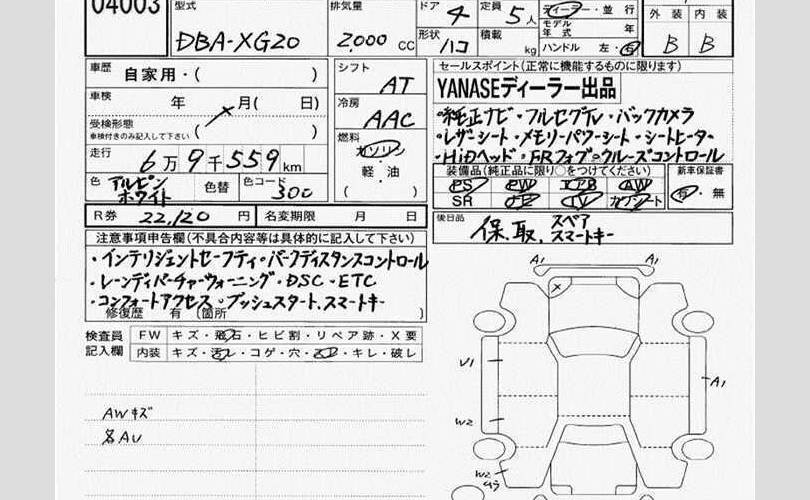 04003
型式
DBA-XG20
排気量
2,000 CC
ドア 4
形状 ハコ
定員 5人
積載 kg
ディーラー・並行
モデル年式 年
ハンドル 左・右
外装 内装
B B
車歴 自家用・( )
車検 年 月( 日)
受検形態
車検付きのみ記入して下さい ( )
走行 6万9千559km
色 アルピンホワイト 色替 色コード 300
シフト AT
冷房 AAC
燃料 ガソリン
軽・油
( )
R券 22,120 円 名変期限 月 日
セールスポイント(正常に機能するものに限ります)
YANASEディーラー出品
・純正ナビ・フルセグTV・バックカメラ
・レザーシート・メモリーパワーシート・シートヒーター
・HiDヘッド・FRフォグ・クルーズコントロール
装備品(純正品に限り○をつけてください)
PS PW エアB AW
SR TV カワシート
新車保証書
有・無
後日品
保、取、スペアスマートキー
注意事項申告欄(不具合内容等は具体的に記入して下さい)
・インテリジェントセーフティ・パークディスタンスコントロール
・レーンディパーチャーウォーニング・DSC・ETC
・コンフォートアクセス・プッシュスタート、スマートキー
修復歴 有 (箇所 )
検査員記入欄
FW キズ・飛石・ヒビ割・リペア跡・X要
内装 キズ・汚レ・コゲ・穴・キレ・破レ
AWキズ
名AU
A1 A1
U1
A1
W2
W2